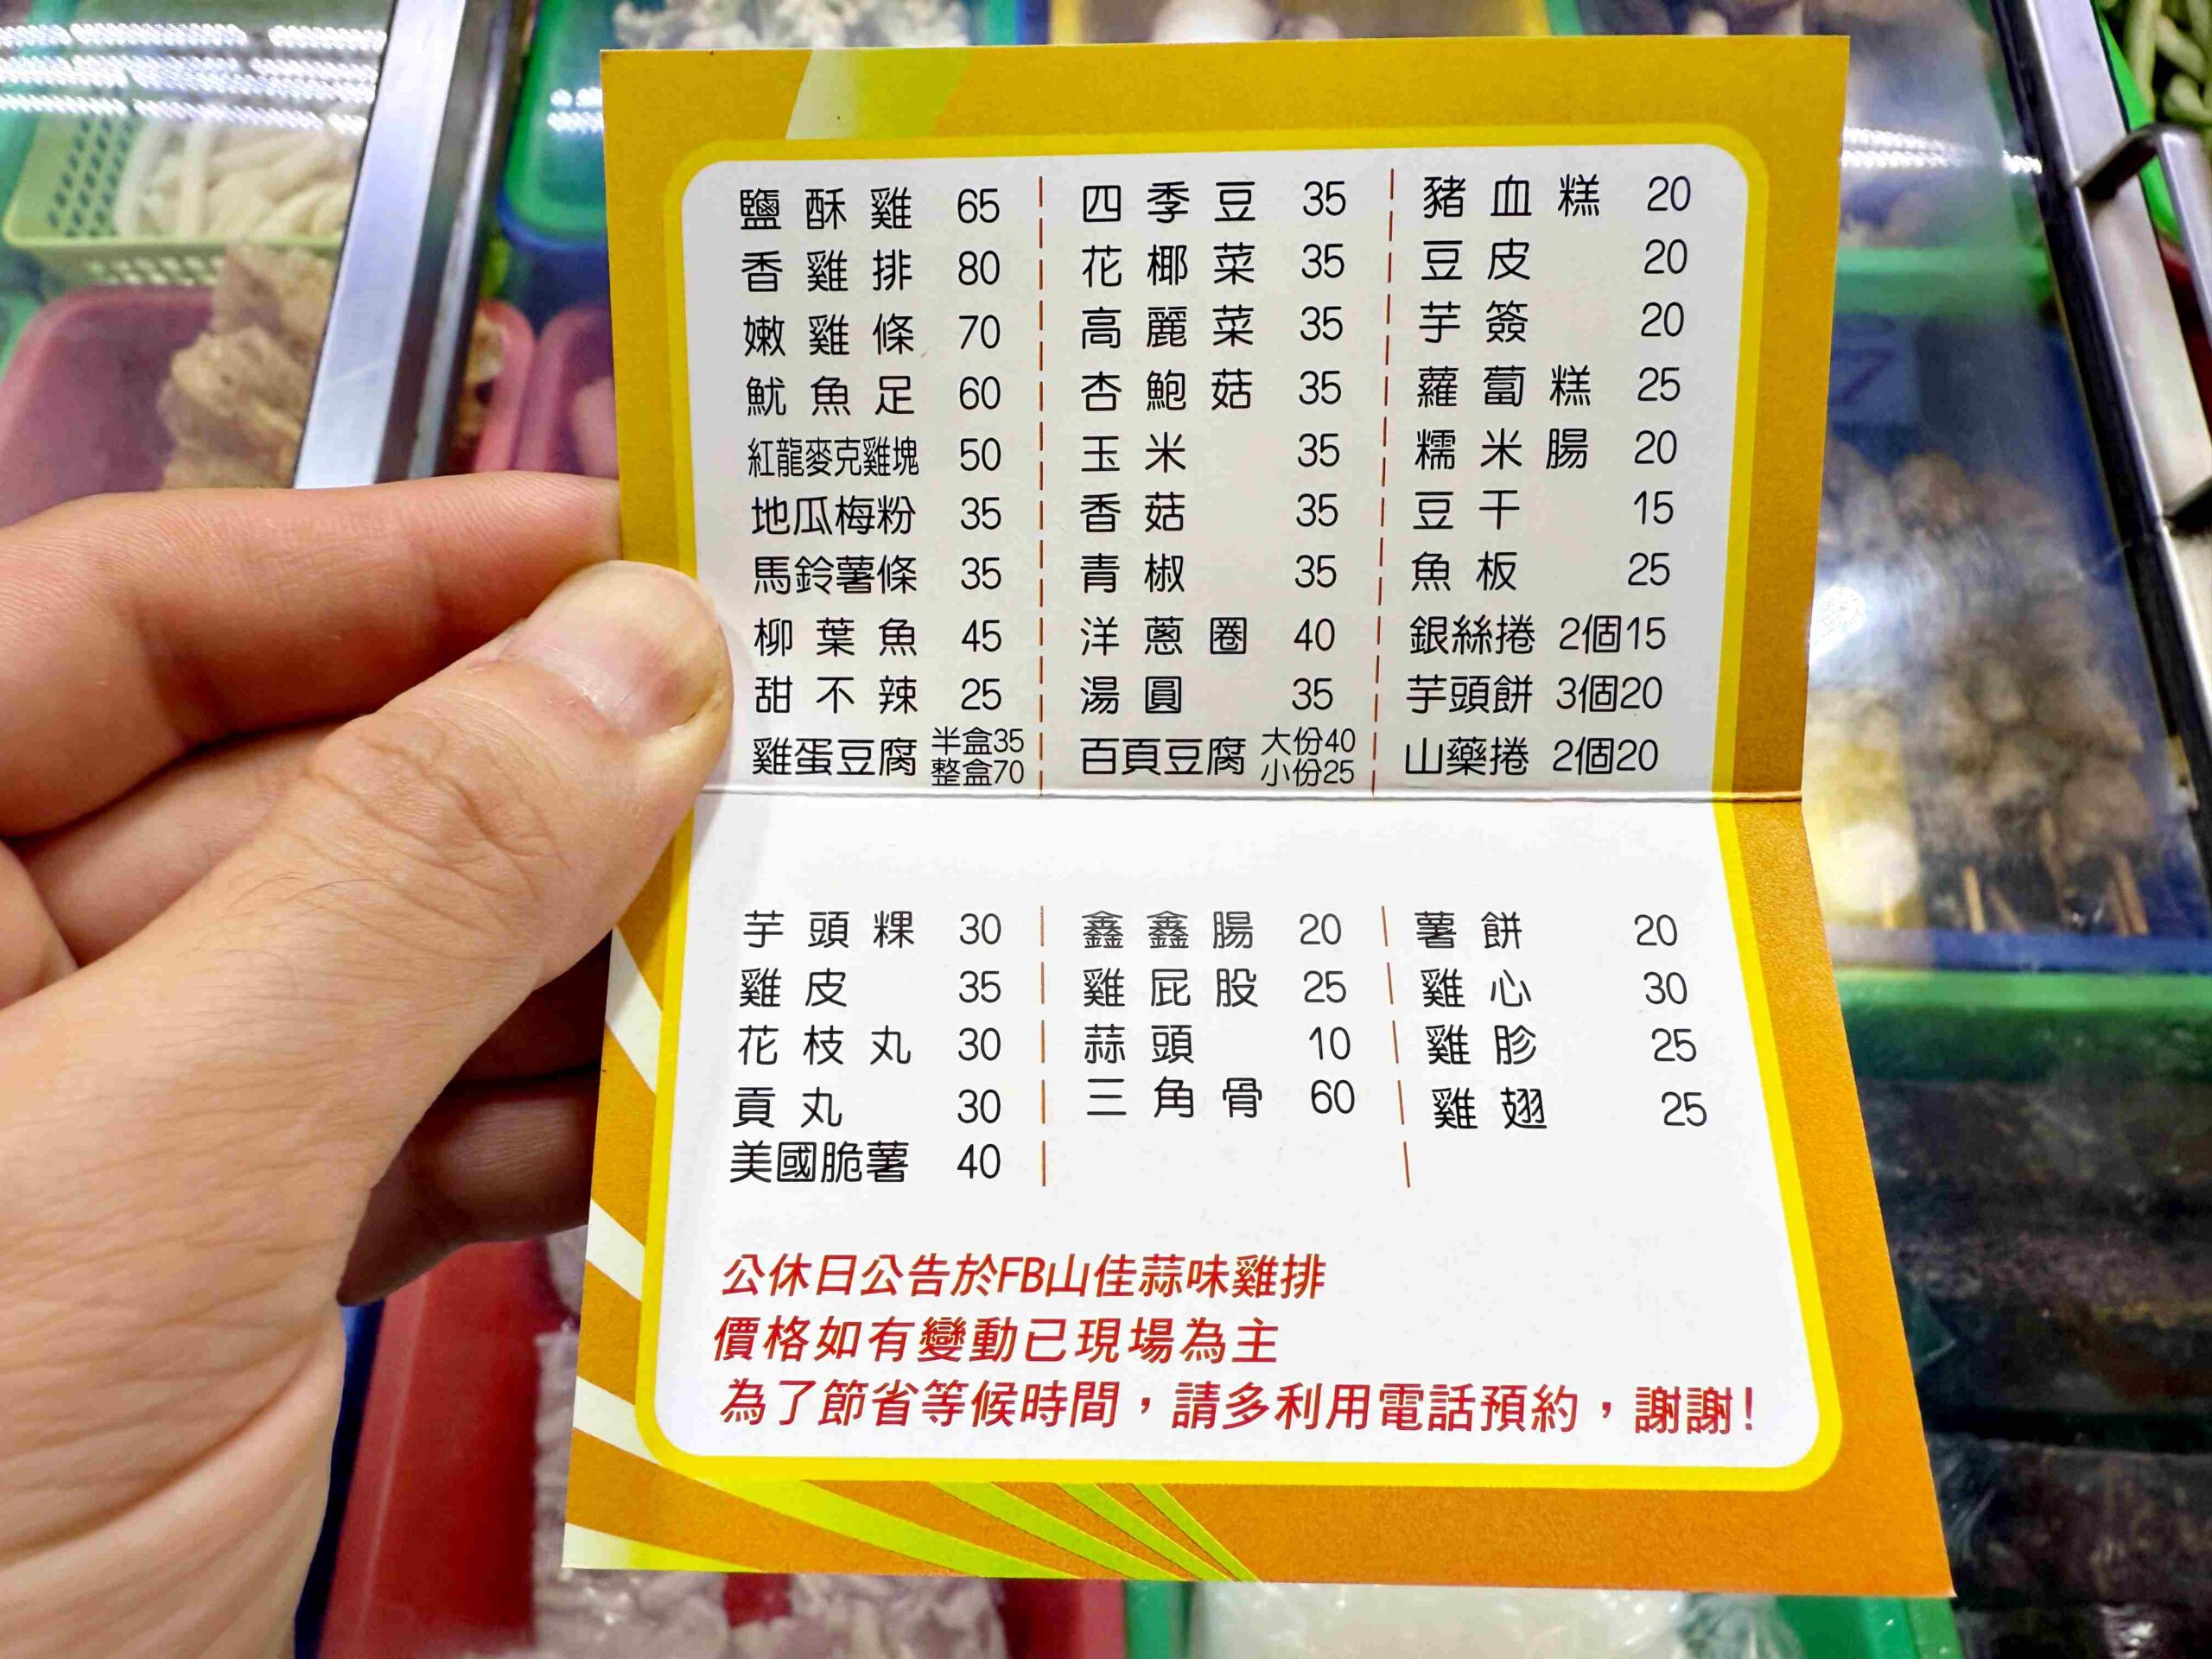 鹽酥雞 65 四季豆 35 豬血糕 20
香雞排 80 花椰菜 35 豆皮 20
嫩雞條 70 高麗菜 35 芋簽 20
魷魚足 60 杏鮑菇 35 蘿蔔糕 25
紅龍麥克雞塊 50 玉米 35 糯米腸 20
地瓜梅粉 35 香菇 35 豆干 15
馬鈴薯條 35 青椒 35 魚板 25
柳葉魚 45 洋蔥圈 40 銀絲捲 2個15
甜不辣 25 湯圓 35 芋頭餅 3個20
雞蛋豆腐 半盒35 整盒70 百頁豆腐 大份40 小份25 山藥捲 2個20
芋頭粿 30 鑫鑫腸 20 薯餅 20
雞皮 35 雞屁股 25 雞心 30
花枝丸 30 蒜頭 10 雞胗 25
貢丸 30 三角骨 60 雞翅 25
美國脆薯 40
公休日公告於FB山佳蒜味雞排
價格如有變動已現場為主
為了節省等候時間，請多利用電話預約，謝謝!